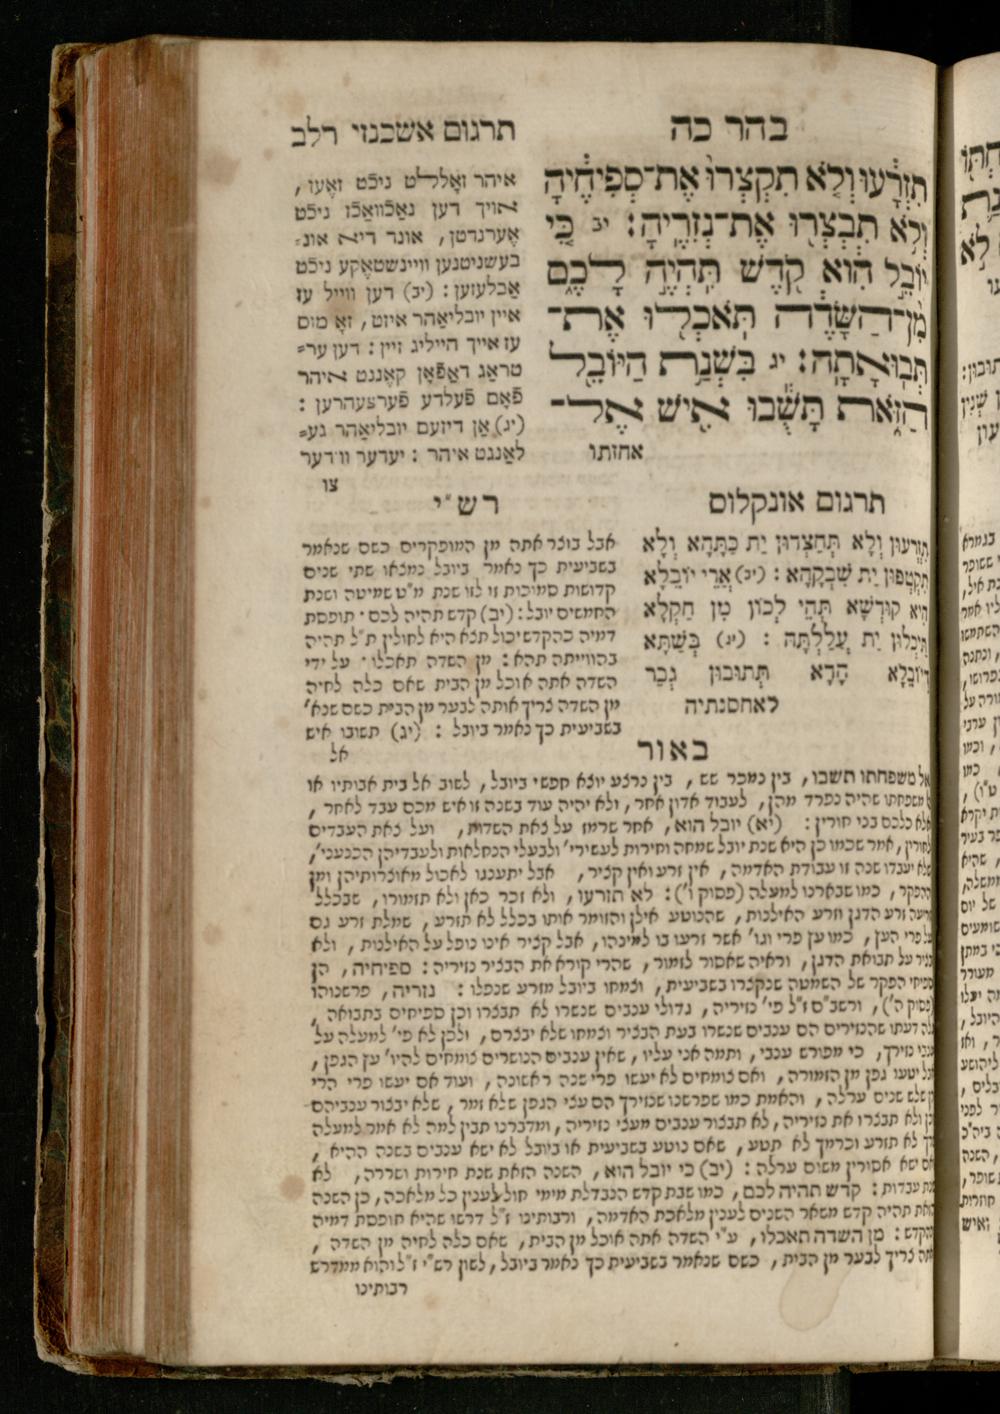 בהר כה
תרגום אשכנזי רלב
תִזְרָ֔עוּ וְלֹ֤א תִקְצְרוּ֙ אֶת־סְפִיחֶ֔יהָ
וְלֹ֥א תִבְצְר֖וּ אֶת־נְזִרֶֽיהָ׃ יב כִּ֚י
יוֹבֵ֣ל הִ֔וא קֹ֖דֶשׁ תִּֽהְיֶ֣ה לָכֶ֑ם
מִ֨ן־הַשָּׂדֶ֔ה תֹּאכְל֖וּ אֶת־
תְּבוּאָתָֽהּ׃ יג בִּשְׁנַ֥ת הַיּוֹבֵ֖ל
הַזֹּ֑את תָּשֻׁ֕בוּ אִ֖ישׁ אֶל־
אחזתו
איהר זאָללט ניכֿט זאֶען,
אויך דען נאַכֿוואַכֿז ניכֿט
אֶערנדטן, אונד דיא אונ־
בעשניטנען וויינשטאָקע ניכֿט
אַבלעזען: (יב) דען ווייל עז
איין יובליאַהר איזט, זאָ מוס
עז אייך הייליג זיין: דען ער־
טראַג דאַפֿאָן קאָננט איהר
פֿאָם פֿעלדע פֿערצעהרען:
(יג) אַן דיזעם יובליאַהר גע־
לאַנגט איהר: יעדער ווידער
צו
תרגום אונקלוס
תִזְרְעוּן וְלָא תְּחַצְדוּן יַת כַּתָּהָא וְלָא
תִקְטְפוּן יַת שִׁבְקָהָא: (יב) אֲרֵי יוֹבֵלָא
הִיא קוּדְשָׁא תְּהֵי לְכוֹן מִן חַקְלָא
תֵּיכְלוּן יַת עֲלַלְתָּהּ: (יג) בְּשַׁתָּא
דְיוֹבֵלָא הָדָא תְּתוּבוּן גְּבַר
לאחסנתיה
רש״י
אבל בוצר אתה מן המופקרים כשם שנאמר
בשביעית כך נאמר ביובל נמצאו שתי שנים
קדושות סמוכות זו לזו שנת מ״ט שמיטה ושנת
החמשים יובל: (יב) קדש תהיה לכם· תופסת
דמיה כהקדש יכול תצא היא לחולין ת״ל תהיה
בהווייתה תהא: מן השדה תאכלו· על ידי
השדה אתה אוכל מן הבית שאם כלה לחיה
מן השדה צריך אותה לבער מן הבית כשם שנא׳
בשביעית כך נאמר ביובל: (יג) תשובו איש
אל
באור
אל משפחתו תשבו, בין נמכר שש, בין נרצע יוצא חפשי ביובל, לשוב אל בית אבותיו או
משפחתו שהיה נפרד מהן, לעבוד אדון אחר, ולא יהיה עוד בשנה זו איש מכם עבד לאחר,
אלא כלכם בני חורין: (יא) יובל הוא, אחר שרמז על צאת השדות, ועל צאת העבדים
לחורין, אמר שכמו כן היא שנת יובל שמחה וחירות לעשירי׳ ולבעלי הנחלאות ולעבדיהן הכנעני׳,
שלא יעבדו שנה זו עבודת האדמה, אין זרע ואין קציר, אבל יתענגו לאכול מאוצרותיהן ומן
ההפקר, כמו שבארנו למעלה (פסוק ו׳): לא תזרעו, ולא זכר כאן ולא תזמורו, שבכלל
זריעה זרע הדגן וזרע האילנות, שהנוטע אילן והזומר אותו בכלל לא תזרע, שמלת זרע גם
על פרי העץ, כמו עץ פרי וגו׳ אשר זרעו בו למינהו, אבל קציר אינו נופל על האילנות, ולא
בציר על תבואת הדגן, וראיה שאסור לזמור, שהרי קורא את הבציר נזיריה: ספיחיה, הן
ספיחי הפקר של השמטה שנקצרו בשביעית, וצמחו ביובל מזרע שנפלו: נזריה, פרשנוהו
(פסוק ה׳), ורשב״ם ז״ל פי׳ נזיריה, גדולי ענבים שנשרו לא תבצרו וכן ספיחים בתבואה,
דעתו שהנזירים הם ענבים שנשרו בעת הבציר וצמחו שלא יבצרם, ולכן לא פי׳ למעלה על
ענבי נזירך, כי מפורש ענבי, ותמה אני עליו, שאין ענבים הנושרים צומחים להיו׳ עץ הגפן,
אבל יטעו גפן מן הזמורה, ואם צומחים לא יעשו פרי שנה ראשונה, ועוד אם יעשו פרי הרי
הן שלש שנים ערלה, והאמת כמו שפרשנו שנזירך הם עצי הגפן שלא זמר, שלא יבצור ענביהם
וכן ולא תבצרו את נזיריה, לא תבצור ענבים מעצי נזיריה, ומדברנו תבין למה לא אמר למעלה
לא תזרע וכרמך לא תטע, שאם נוטע בשביעית או ביובל לא ישא ענבים בשנה ההיא,
אם ישא אסורין משום ערלה: (יב) כי יובל הוא, השנה הזאת שנת חירות ושררה, לא
שנת עבדות: קדש תהיה לכם, כמו שבת קדש הנבדלת מימי חול לענין כל מלאכה, כן השנה
הזאת תהיה קדש משאר השנים לענין מלאכת האדמה, ורבותינו ז״ל דרשו שהיא תופסת דמיה
כהקדש: מן השדה תאכלו, ע״י השדה אתה אוכל מן הבית, שאם כלה לחיה מן השדה,
אתה צריך לבער מן הבית, כשם שנאמר בשביעית כך נאמר ביובל, לשון רש״י ז״ל והוא ממדרש
רבותינו